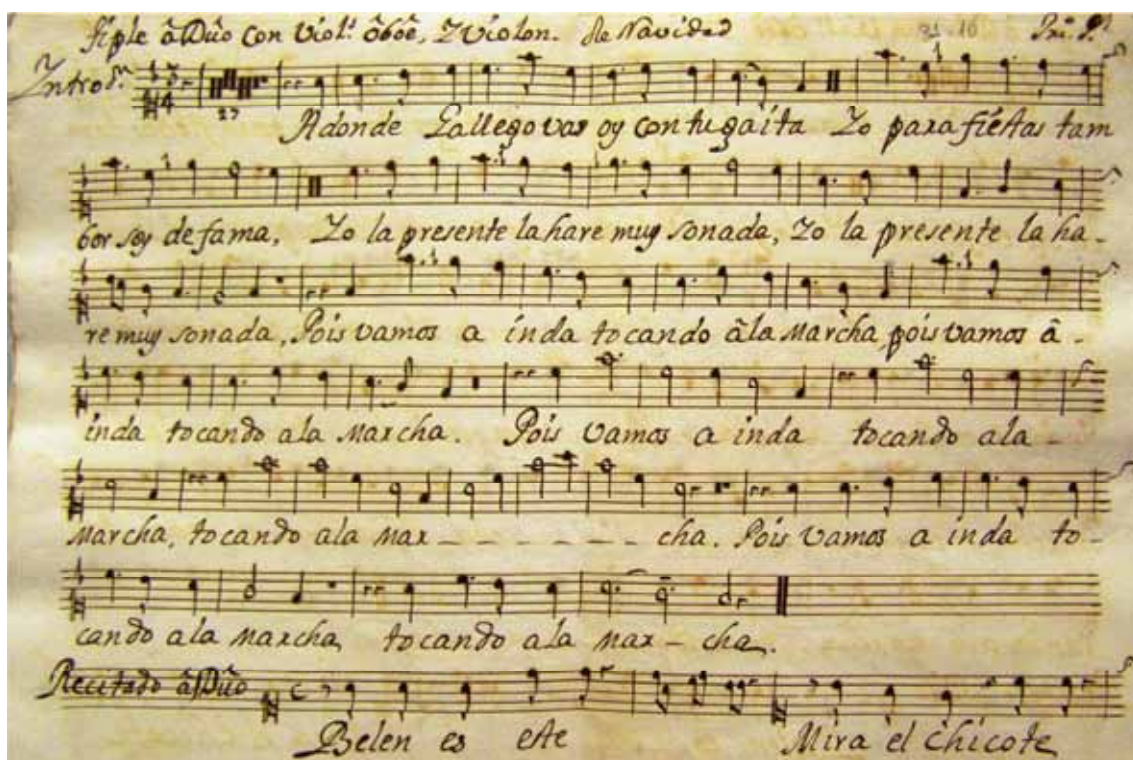 Tiple â Dûo con Viol.s ôboê, Y Violon. de Navidad
Yntrod.n 27
Adonde Gallego vas oy con tu gaita Yo para fiestas tam
bor soy de fama, Yo la presente la hare muy sonada, Yo la presente la ha-
re muy sonada, Pois vamos a inda tocando âla Marcha pois vamos â-
inda tocando ala Marcha. Pois vamos a inda tocando ala-
Marcha, tocando ala Mar - - - - - - cha. Pois vamos a inda to-
cando ala Marcha, tocando ala Mar - cha.
Recitado â Dûo
Belen es este Mira el chicote